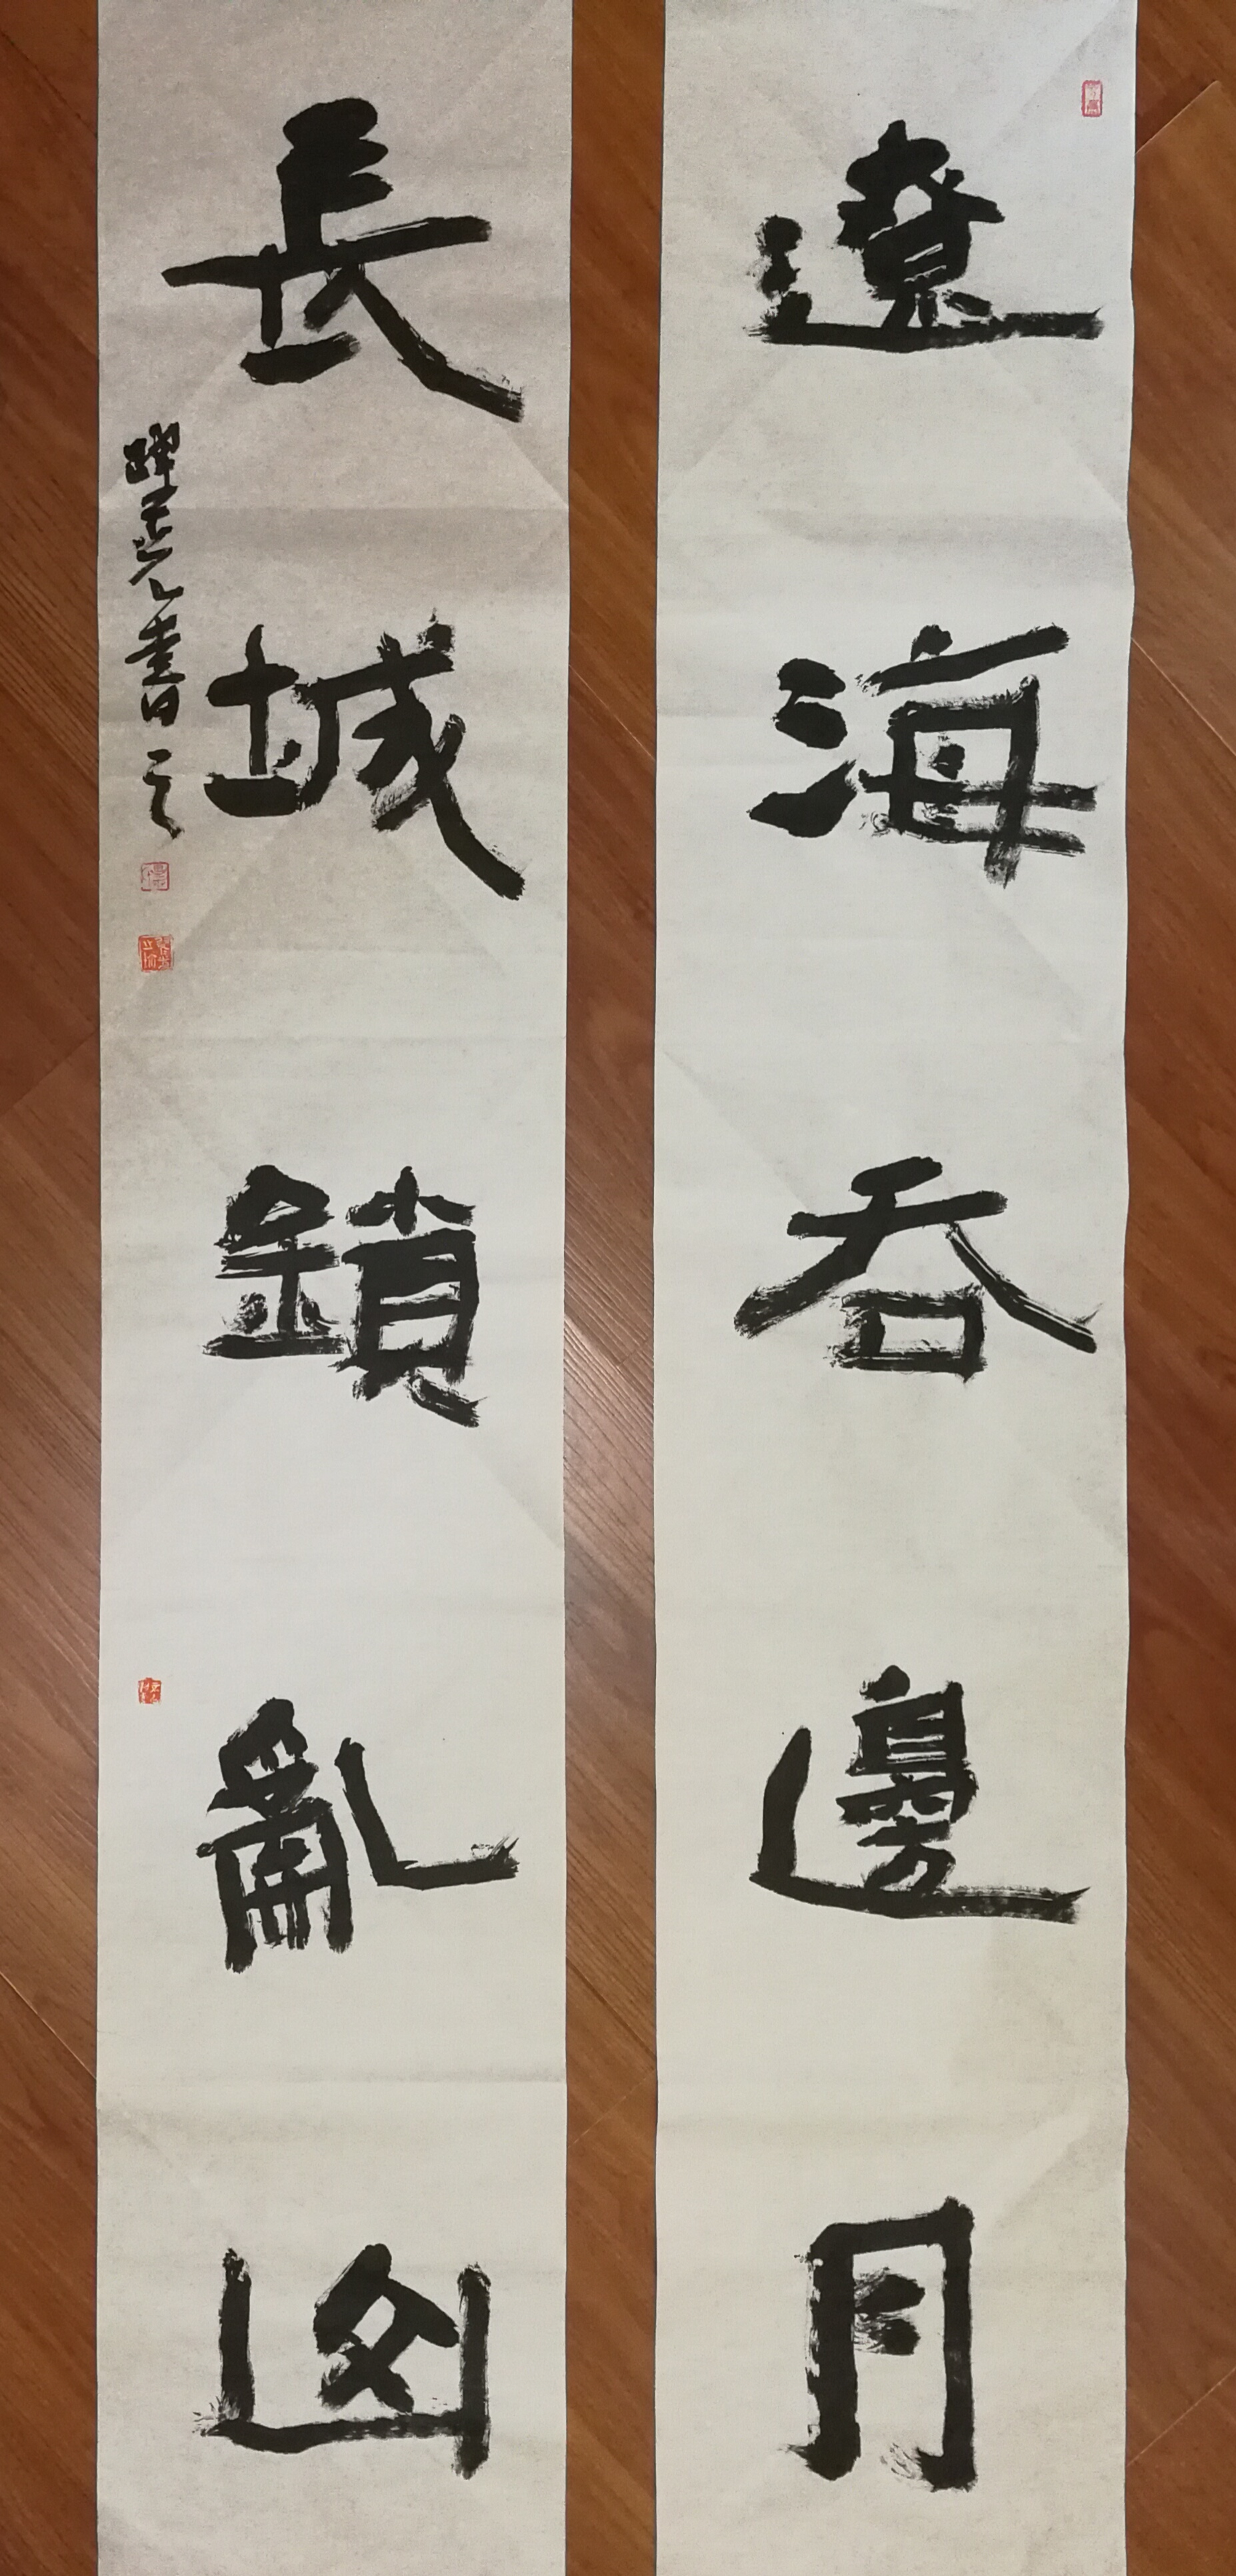 遼海吞邊月
長城鎖亂山
躍書之